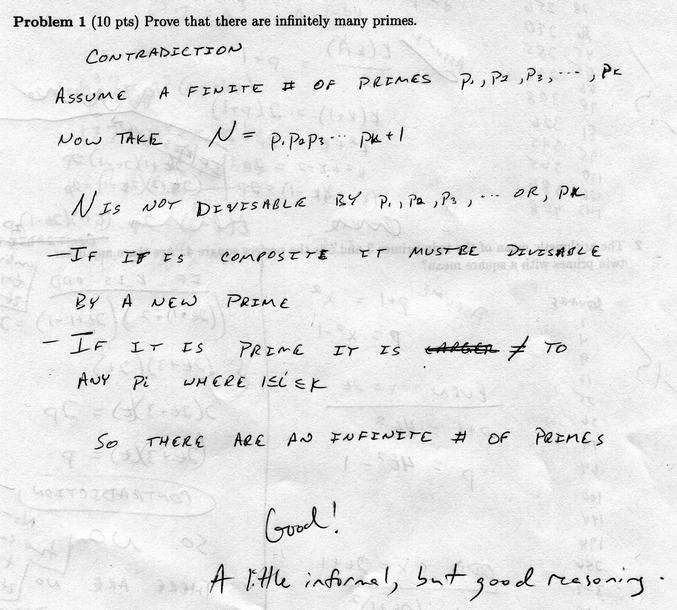 Problem 1 (10 pts) Prove that there are infinitely many primes.
CONTRADICTION
ASSUME A FINITE # OF PRIMES p₁, p₂, p₃, ..., pₖ
NOW TAKE N = p₁p₂p₃ ... pₖ + 1
N IS NOT DIVISABLE BY p₁, p₂, p₃, ... OR, pₖ
— IF IT IS COMPOSITE IT MUST BE DIVISABLE
BY A NEW PRIME
— IF IT IS PRIME IT IS LARGER ≠ TO
ANY pᵢ WHERE 1≤i≤k
SO THERE ARE AN INFINITE # OF PRIMES
Good!
A little informal, but good reasoning.